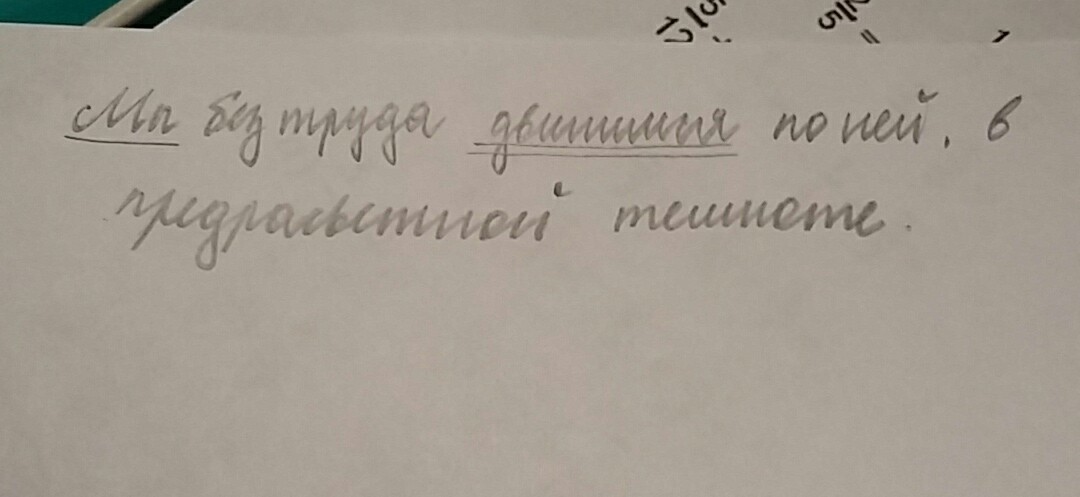 Мы без труда движимся по ней, в
предрассветной темноте.